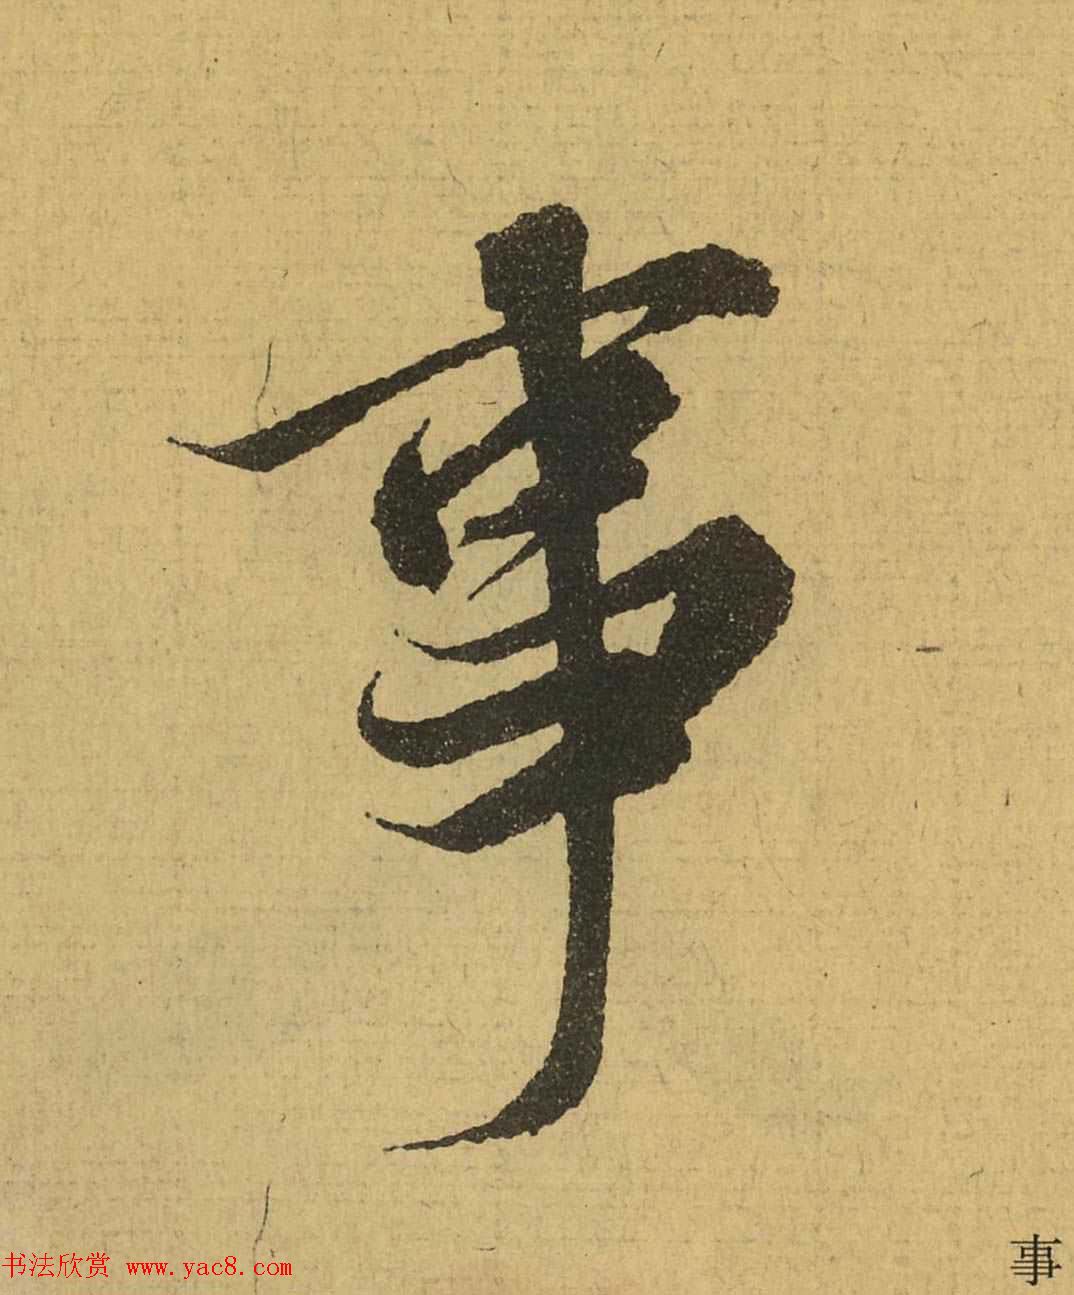 事
书法欣赏 www.yac8.com
事